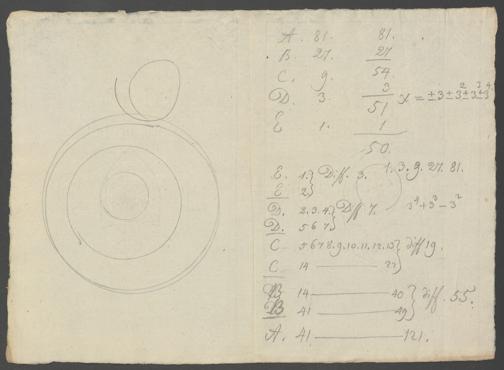 A. 81. 81.
B. 27. 27
C. 9. 54.
D. 3. 3
51 x = ±3±3²±3³±3⁴
E 1. 1
50.
E. 1.} Diff. 3. 1. 3. 9. 27. 81.
E 2.}
D. 2. 3. 4.} Diff 7. 3⁴+3³-3²
D. 5 6 7}
C 5 6 7 8. 9. 10. 11. 12. 13} diff 19.
C 14 — 22}
B 14 — 40} diff. 55.
B 41 — 49}
A. 41 — 121.